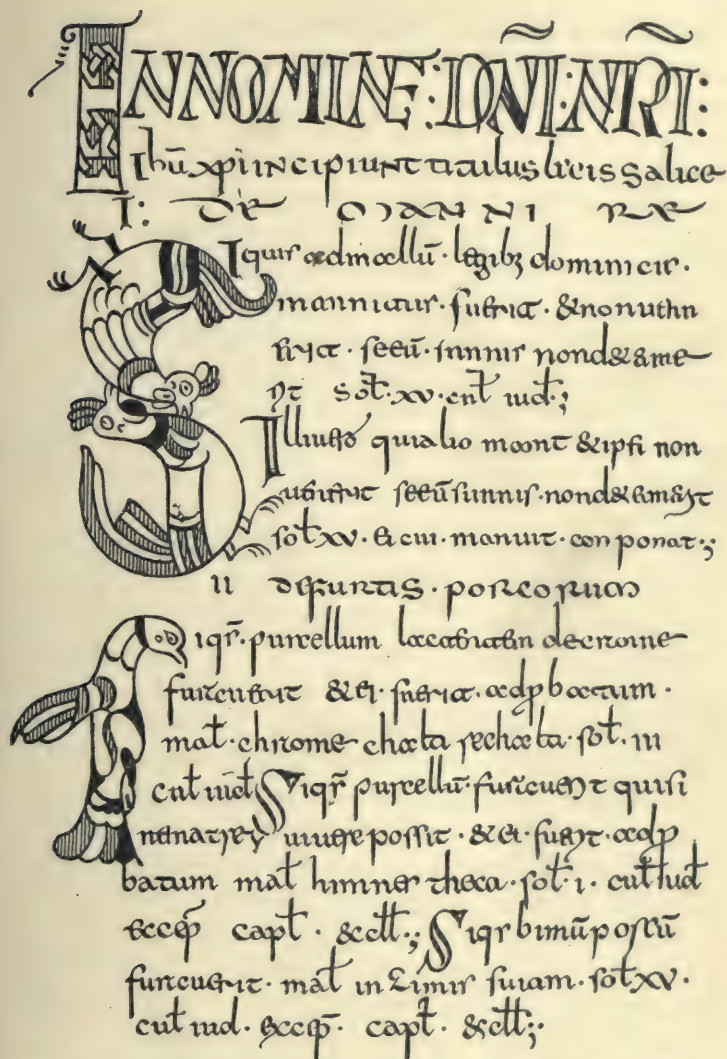 IN NOMINE: DÑI: NRĪ:
Ihū xpi incipiunt titulus legis salice
I: DE MANNIRE
Siquis ad mallū · legibꝫ dominicis ·
mannitus · fuerit · & non uthn
erit · seeū · sunnis non d&ame
rit soƚ · xv · cuƚ iuđ ·;
Ille uero qui alio manit & ipsi non
uenerit seeū sunnis · non d&amerit
soƚ xv · & cui · manuit · conponat ·;
II DE FURTIS · PORCORUM
Siqr̄ · purcellum lactantem de crome
furauerit & ei · fuerit · adp̄batum ·
maƚ · chrome chalta rechalta · soƚ · III
cuƚ iuđ Siqr̄ purcellū · furauerit qui si
ne matre uiuere possit · & ei · fuerit · adp̄
batum maƚ himner theca · soƚ · I · cuƚ iuđ
excep̄ capƚ · & đƚ ·; Siqr bimū porcū
furauerit · maƚ in zimis suiam · soƚ xv ·
cuƚ iuđ · excep̄ · capƚ · & đƚ ·;